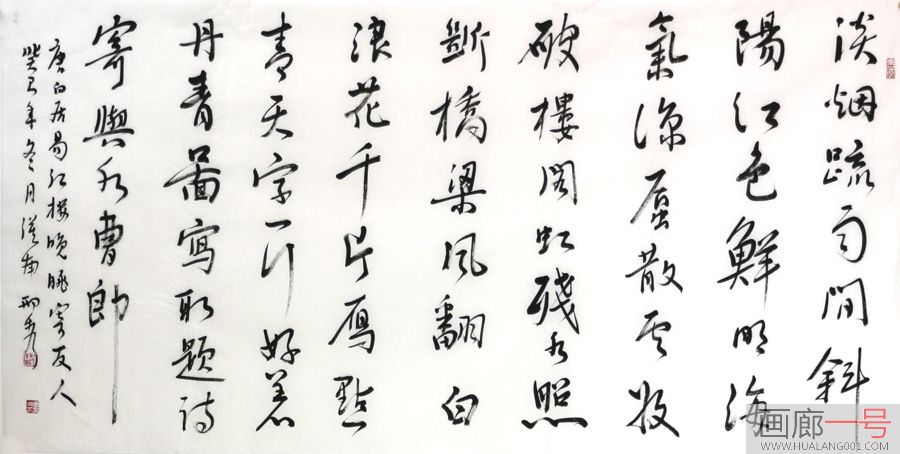 淡烟疏雨間斜
陽江色鮮明海
氣凉蜃散雲收
破樓閣虹殘水照
斷橋梁風翻白
浪花千片雁點
青天字一行好着
丹青圖寫取题诗
寄與水曹郎
唐白居易江樓晚眺寄友人
癸巳年冬月
画廊一号
WWW.HUALANG001.COM